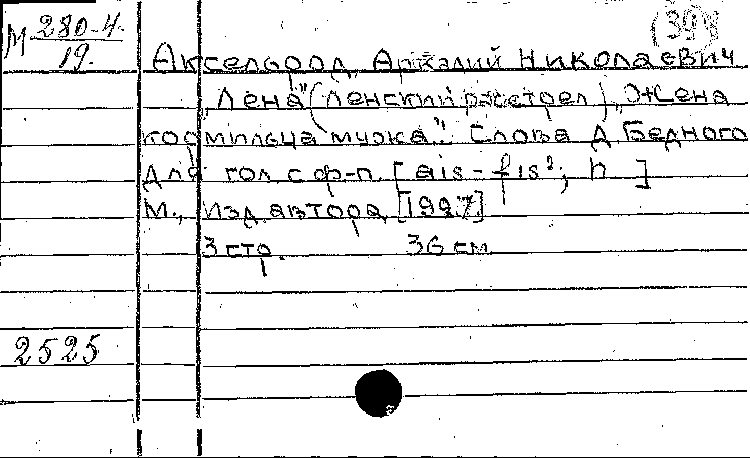 М 280-4
19.
(39)
Аксельрод, Аркадий Николаевич
„Лена" (Ленский расстрел). „Жена
кормильца мужа". Слова Д. Бедного
Для гол. с ф-п. [ais - fis²; h]
М., Изд. автора, [1927]
3 стр. 36 см
2525